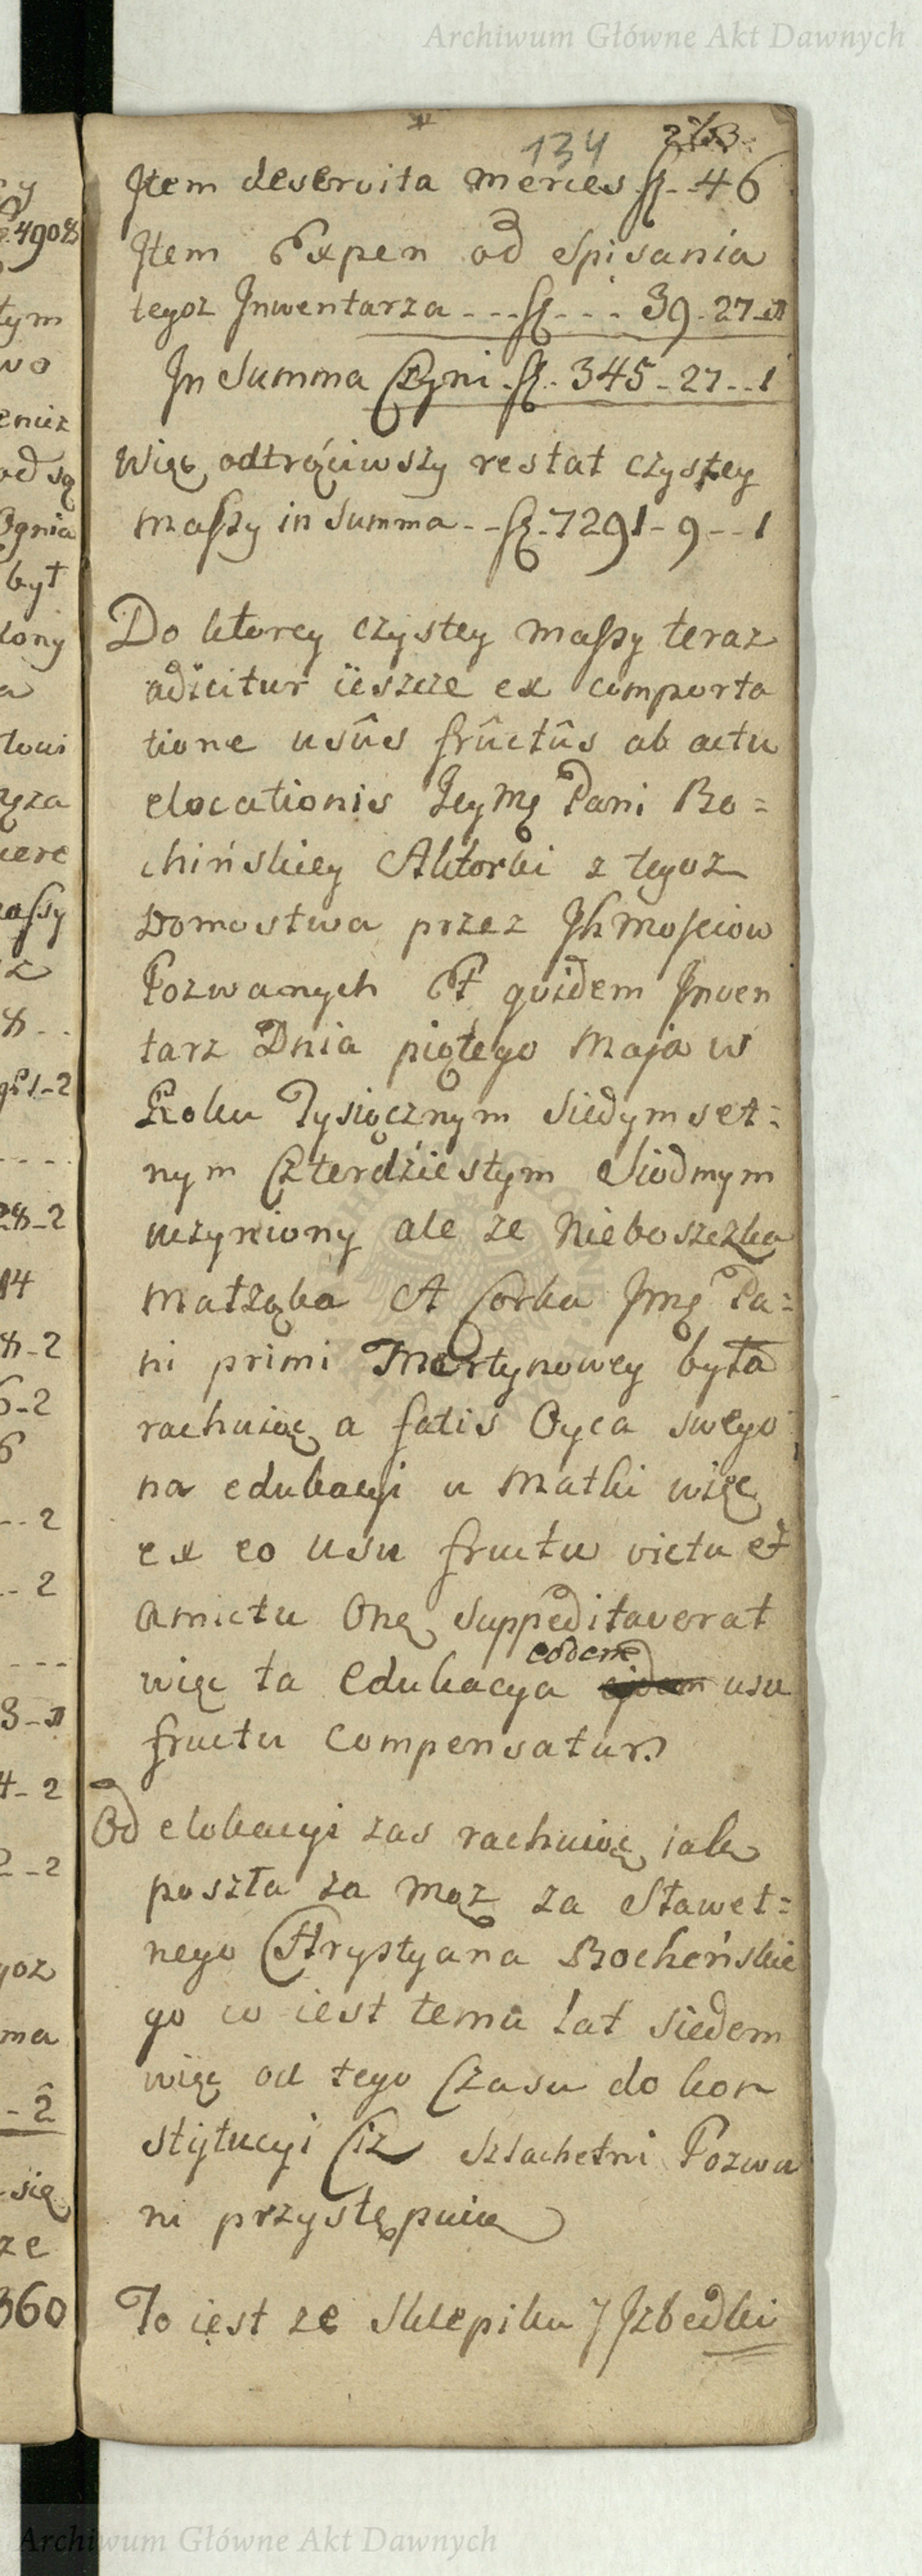 Archiwum Główne Akt Dawnych
134
Item deservita merces fl. 46
Item Expen od spisania
tegoz Inwentarza - - - fl - - - 39 - 27 -
In Summa Czyni fl. 345 - 27 - - 1
Więc odtrąciwszy restat czystey
Massy in Summa - - fl. 7291 - 9 - - 1
Do ktorey czystey massy teraz
adiicitur ieszcze ex comporta
tione usûs frûctûs ab actu
elocationis Jeymę Pani Bo=
chińskiey Aktorki z tegoz
Domostwa przez Ichmosciow
Pozwanych Et quidem Inven
tarz Dnia piątego Maja w
Roku Tysiącznym Siedymset=
nym Czterdziestym Siodmym
uczyniony ale ze Nieboszczka
Małząka A Corka Jmę Pa=
ni primi Martynowey była
rachuiąc a fatis Oyca swego
na edukacyi u Matki więc
ex eo usu fructu victu et
amictu Onę suppeditaverat
eodem
więc ta Edukacya usu
fructu compensatur.
Od elokacyi zas rachuiąc iak
poszła za mąz za Sławet=
nego Chrystyana Bocheńskie
go co iest temu lat siedem
więc od tego Czasu do kon
stytucyi Ciz Szlachetni Pozwa
ni przystępuią
To iest ze Sklepiku y Izbedki
Archiwum Główne Akt Dawnych